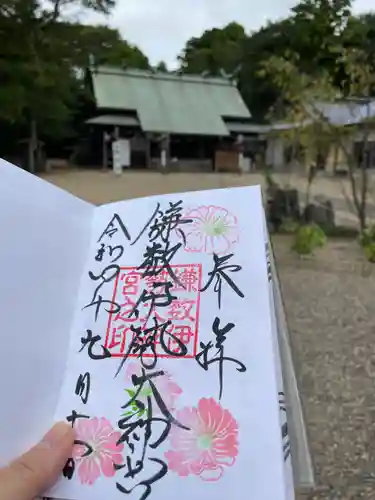 奉拝
鎌数伊勢大神宮
鎌数伊
勢大神
宮之印
令和四年九月